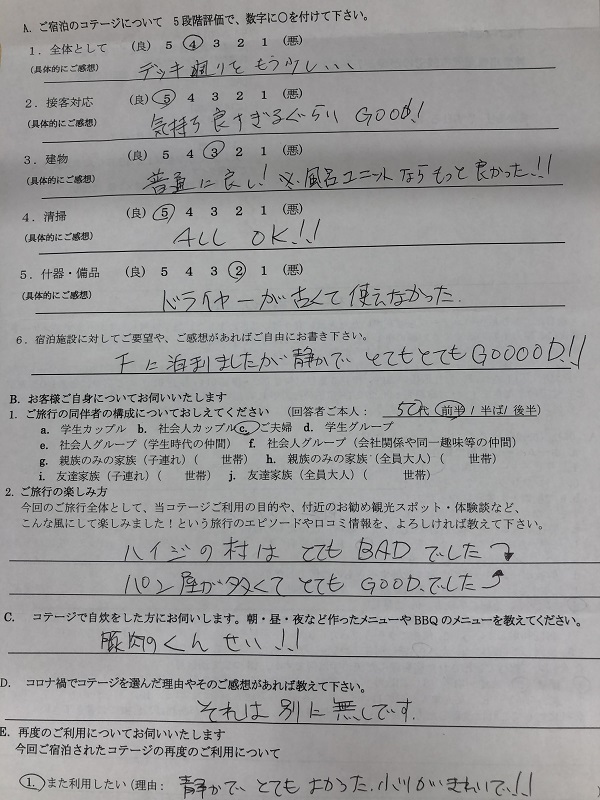 A. ご宿泊のコテージについて 5段階評価で、数字に○を付けて下さい。
1．全体として (良) 5 4 3 2 1 (悪)
(具体的にご感想) デッキ周りをもう少し、、、
2．接客対応 (良) 5 4 3 2 1 (悪)
(具体的にご感想) 気持ち良すぎるぐらい GOOD!!
3．建物 (良) 5 4 3 2 1 (悪)
(具体的にご感想) 普通に良し! ※風呂ユニットならもっと良かった!!
4．清掃 (良) 5 4 3 2 1 (悪)
(具体的にご感想) ALL OK!!
5．什器・備品 (良) 5 4 3 2 1 (悪)
(具体的にご感想) ドライヤーが古くて使えなかった.
6．宿泊施設に対してご要望や、ご感想があればご自由にお書き下さい。
Fに泊まりましたが静かで とてもとてもGOOOOD!!
B. お客様ご自身についてお伺いいたします
1. ご旅行の同伴者の構成についておしえてください (回答者ご本人： 50代 前半 / 半ば / 後半)
a. 学生カップル b. 社会人カップル c. ご夫婦 d. 学生グループ
e. 社会人グループ（学生時代の仲間） f. 社会人グループ（会社関係や同一趣味等の仲間）
g. 親族のみの家族（子連れ）（ 世帯） h. 親族のみの家族（全員大人）（ 世帯）
i. 友達家族（子連れ）（ 世帯） j. 友達家族（全員大人）（ 世帯）
2. ご旅行の楽しみ方
今回のご旅行全体として、当コテージご利用の目的や、付近のお勧め観光スポット・体験談など、
こんな風にして楽しみました！という旅行のエピソードや口コミ情報を、よろしければ教えて下さい。
ハイジの村は とても BADでした
パン屋が多くて とても GOODでした
C. コテージで自炊をした方にお伺いします。朝・昼・夜など作ったメニューやBBQのメニューを教えてください。
豚肉のくんせい!!
D. コロナ禍でコテージを選んだ理由やそのご感想があれば教えて下さい。
それは別に無しです.
E. 再度のご利用についてお伺いいたします
今回ご宿泊されたコテージの再度のご利用について
1. また利用したい（理由： 静かで、とてもよかった. 小川がきれいで!!